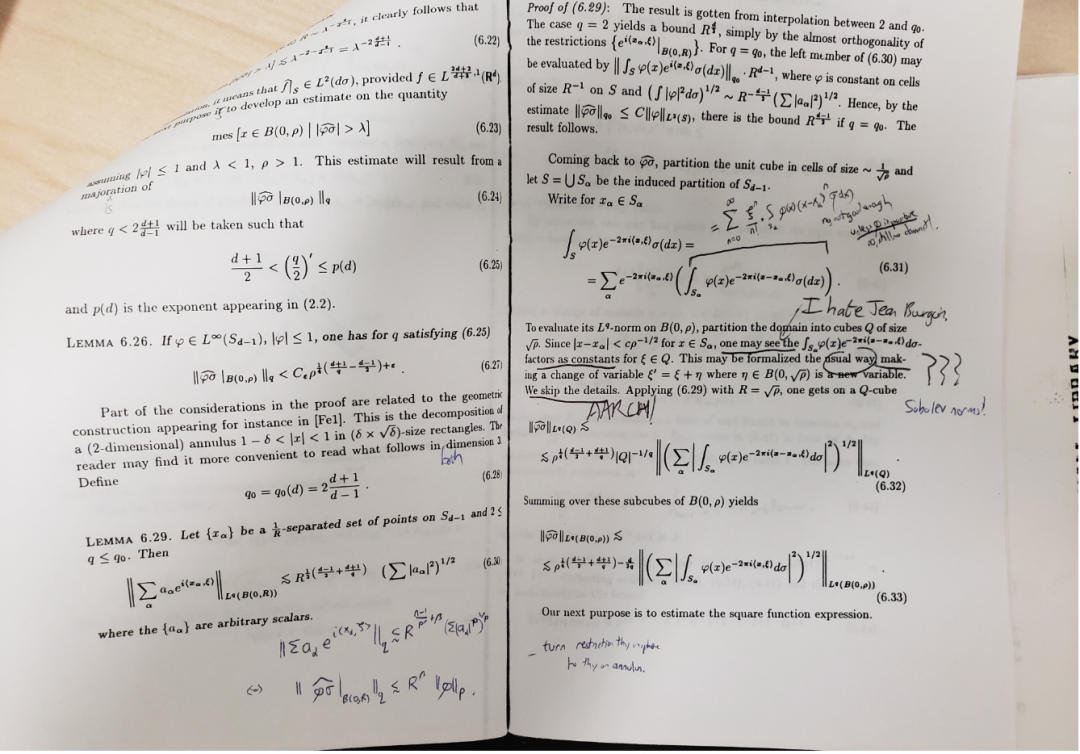 it clearly follows that
(6.22)
it means that f̂|_S ∈ L²(dσ), provided f ∈ L^{\frac{2d+2}{d+3}}(R^d)
purpose is to develop an estimate on the quantity
mes [x ∈ B(0, ρ) | |φ̂σ| > λ] (6.23)
assuming |φ| ≤ 1 and λ < 1, ρ > 1. This estimate will result from a
majoration of
‖φ̂σ |_{B(0,ρ)} ‖_q (6.24)
where q < 2\frac{d+1}{d-1} will be taken such that
\frac{d+1}{2} < (\frac{q}{2})' ≤ p(d) (6.25)
and p(d) is the exponent appearing in (2.2).
LEMMA 6.26. If φ ∈ L^∞(S_{d-1}), |φ| ≤ 1, one has for q satisfying (6.25)
‖φ̂σ |_{B(0,ρ)} ‖_q < C_ε ρ^{\frac{1}{2}(\frac{d+1}{q} - \frac{d-1}{2})+ε} . (6.27)
Part of the considerations in the proof are related to the geometric
construction appearing for instance in [Fe1]. This is the decomposition of
a (2-dimensional) annulus 1 − δ < |x| < 1 in (δ × √δ)-size rectangles. The
reader may find it more convenient to read what follows in dimension 3.
Define
q_0 = q_0(d) = 2\frac{d+1}{d-1} . (6.28)
LEMMA 6.29. Let {x_α} be a \frac{1}{R}-separated set of points on S_{d-1} and 2 ≤
q ≤ q_0. Then
‖∑_α a_α e^{i⟨x_α,ξ⟩}‖_{L^q(B(0,R))} ≲ R^{\frac{1}{2}(\frac{d-1}{2}+\frac{d+1}{q})} (∑|a_α|²)^{1/2} (6.30)
where the {a_α} are arbitrary scalars.
‖∑ a_α e^{i⟨x_α, ξ⟩}‖_q ≲ R^{\frac{n-1}{p'}+β} (∑|a_α|^p)^{1/p}
‖ φ̂σ |_{B(0,R)} ‖_q ≲ R^β ‖φ‖_p .
Proof of (6.29): The result is gotten from interpolation between 2 and q_0.
The case q = 2 yields a bound R^{\frac{d}{2}}, simply by the almost orthogonality of
the restrictions {e^{i⟨x_α,ξ⟩}|_{B(0,R)}}. For q = q_0, the left member of (6.30) may
be evaluated by ‖∫_S φ(x)e^{i⟨x,ξ⟩}σ(dx)‖_{q_0} · R^{d-1}, where φ is constant on cells
of size R^{-1} on S and (∫|φ|²dσ)^{1/2} ~ R^{-\frac{d-1}{2}}(∑|a_α|²)^{1/2}. Hence, by the
estimate ‖φ̂σ‖_{q_0} ≤ C‖φ‖_{L²(S)}, there is the bound R^{\frac{d-1}{2}} if q = q_0. The
result follows.
Coming back to φ̂σ, partition the unit cube in cells of size ~ \frac{1}{√ρ} and
let S = ⋃ S_α be the induced partition of S_{d-1}.
Write for x_α ∈ S_α
∫_S φ(x)e^{-2πi⟨x,ξ⟩}σ(dx) =
= ∑_α e^{-2πi⟨x_α,ξ⟩} (∫_{S_α} φ(x)e^{-2πi⟨x-x_α,ξ⟩}σ(dx)) . (6.31)
I hate Jean Burgin.
To evaluate its L^q-norm on B(0, ρ), partition the domain into cubes Q of size
√ρ. Since |x−x_α| < cρ^{-1/2} for x ∈ S_α, one may see the ∫_{S_α} φ(x)e^{-2πi⟨x-x_α,ξ⟩}dσ-
factors as constants for ξ ∈ Q. This may be formalized the usual way mak-
ing a change of variable ξ' = ξ + η where η ∈ B(0, √ρ) is a new variable. ???
We skip the details. Applying (6.29) with R = √ρ, one gets on a Q-cube
Sobolev norms!
‖φ̂σ‖_{L^q(Q)} ≲
≲ ρ^{\frac{1}{4}(\frac{d-1}{2}+\frac{d+1}{q})}|Q|^{-1/q} ‖(∑_α |∫_{S_α} φ(x)e^{-2πi⟨x-x_α,ξ⟩}dσ|²)^{1/2}‖_{L^q(Q)}
(6.32)
Summing over these subcubes of B(0, ρ) yields
‖φ̂σ‖_{L^q(B(0,ρ))} ≲
≲ ρ^{\frac{1}{4}(\frac{d-1}{2}+\frac{d+1}{q})-\frac{d}{2q}} ‖(∑_α |∫_{S_α} φ(x)e^{-2πi⟨x,ξ⟩}dσ|²)^{1/2}‖_{L^q(B(0,ρ))}
(6.33)
Our next purpose is to estimate the square function expression.
turn restriction thy
to thy on annulus.
LIBRARY